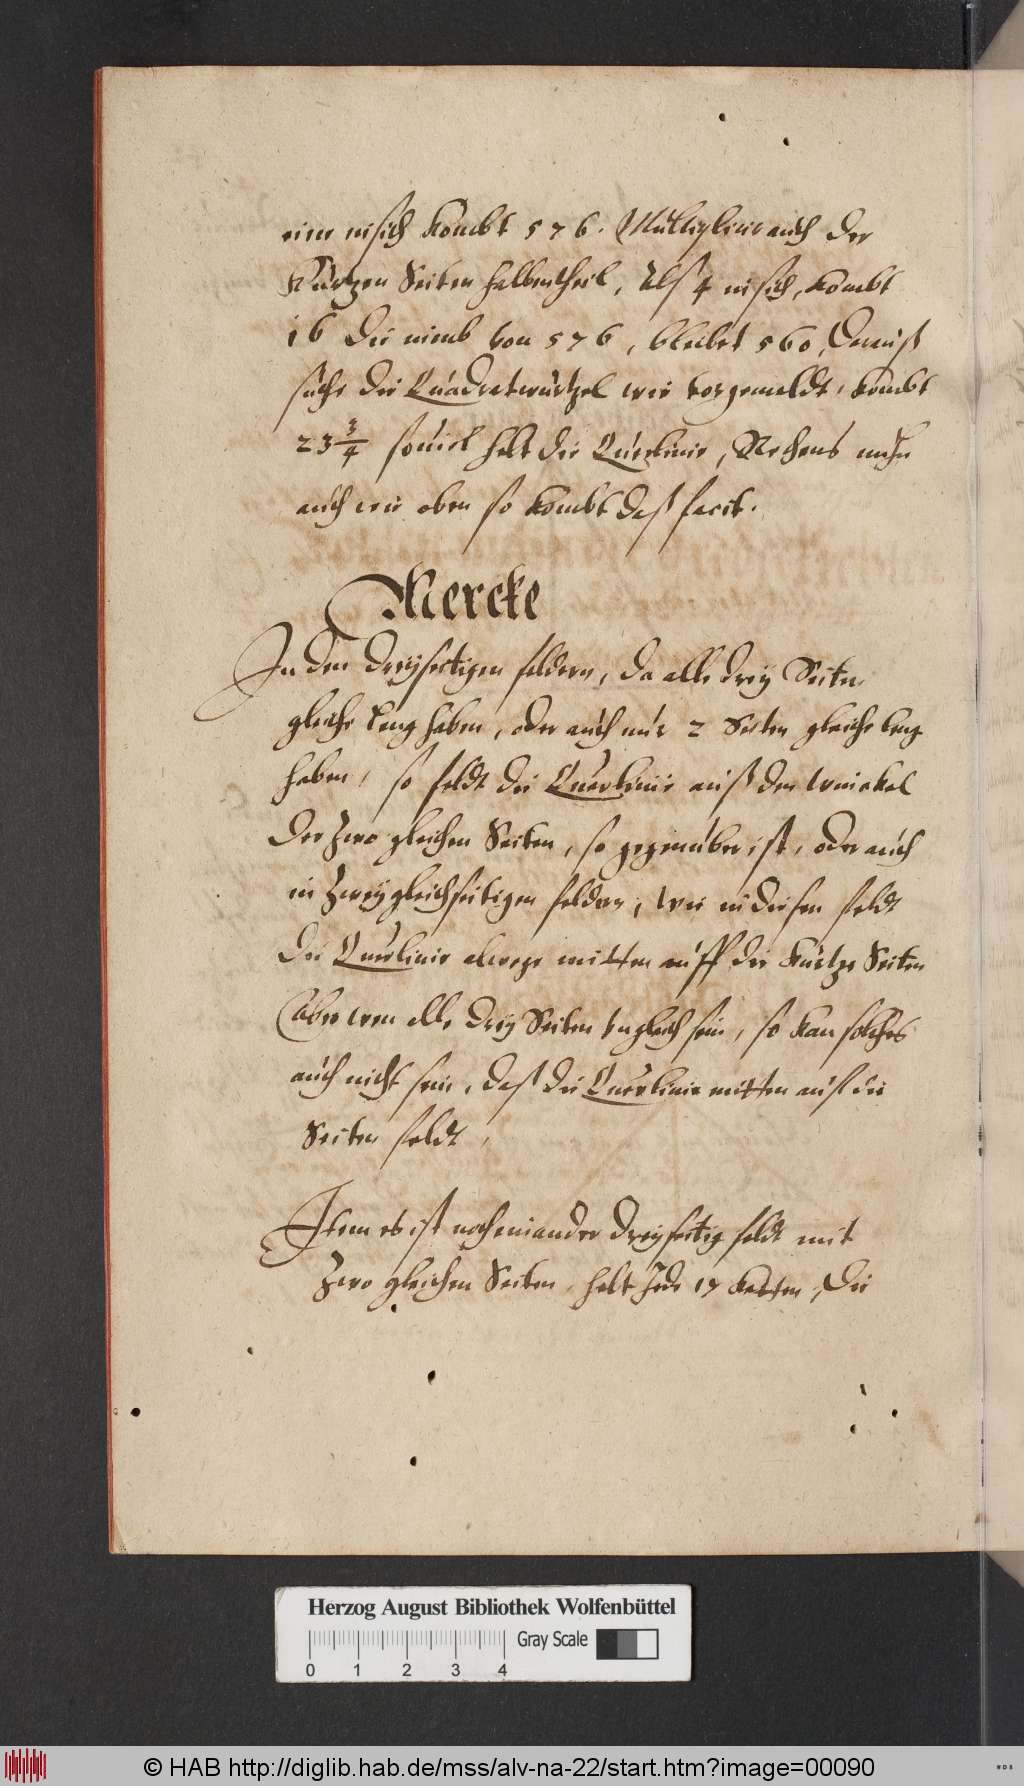 eine insich kombt 576. Multiplicir auch der
Kurtzen Seiten halbentheil, Als 4 insich, kombt
16 die nimb von 576, bleibet 560, Darauß
suche die Quadratwurtzel wie vorgemeldt, kombt
23 3/4 souiel helt die Querlinie, Rechens nuhn
auch wie oben so kombt daß facit.
Mercke
In den dreyseitigen feldern, da alle drey Seiten
gleiche leng haben, oder auch nur 2 Seiten gleiche leng
haben, so feldt die Querlinie auß dem Winckel
der Zwo gleichen Seiten, so gegenuber ist, oder auch
in Zweygleichseitigen feldern, wie in diesem feldt
die Querlinie alwege mitten auff die kurtze Seiten
Aber wen alle drey Seiten vngleich sein, so kan solches
auch nicht sein, daß die Querlinie mitten auf die
Seiten feldt,
Item es ist noch ein ander dreyseitig feldt mit
Zwo gleichen Seiten, helt jede 17 Ketten, die
Herzog August Bibliothek Wolfenbüttel
Gray Scale
0 1 2 3 4
© HAB http://diglib.hab.de/mss/alv-na-22/start.htm?image=00090